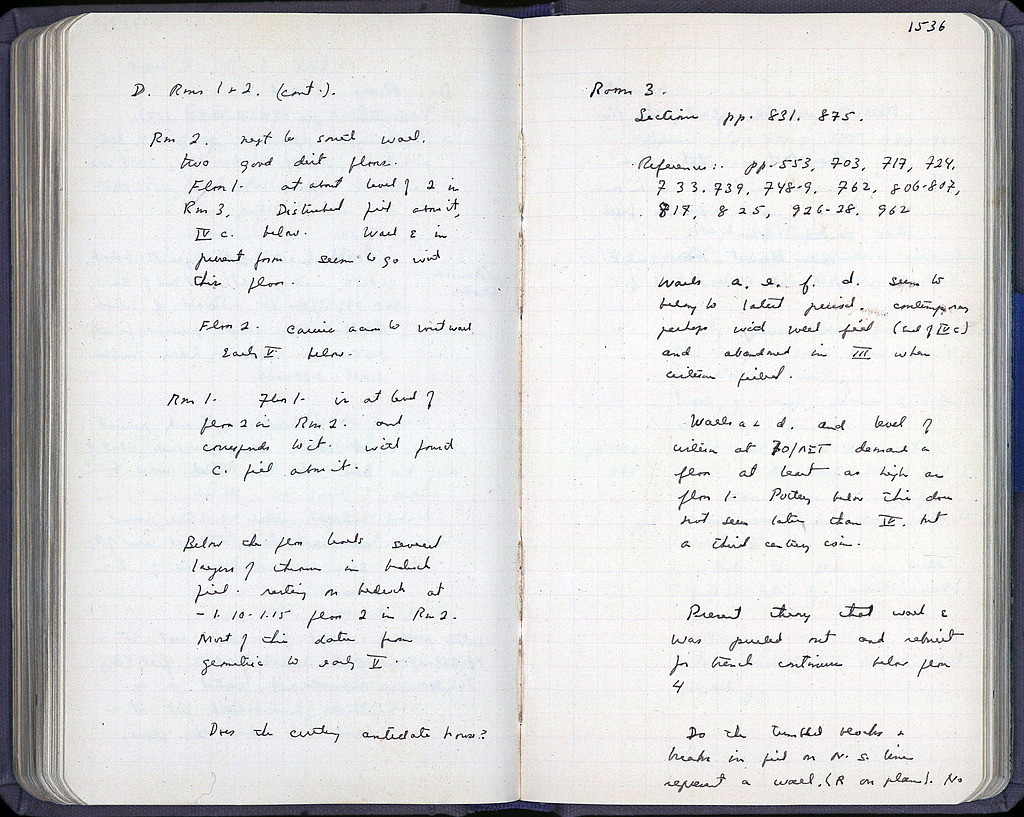 D. Rms 1 + 2. (cont.).
Rm 2. next to south wall.
two good dirt floors.
Floor 1. at about level of 2 in
Rm 3. Disturbed fill above it,
IV c. below. Wall ε in
present form seems to go with
this floor.
Floor 2. carries across to west wall
Early V below.
Rm 1. Floor 1. is at level of
floor 2 in Rm 2. and
corresponds to it. with fourth
c. fill above it.
Below the floor levels several
layers of thrown in bedrock
fill. resting on bedrock at
- 1.10-1.15 floor 2 in Rm 2.
Most of this dates from
geometric to early V.
Does the cutting antedate house?
1536
Room 3.
Section pp. 831. 875.
References: pp. 553, 703, 717, 724,
733. 739, 748-9, 762, 806-807,
817, 825, 926-28. 962
Walls a. e. f. d. seem to
belong to latest period. contemporary
perhaps with well fill (end of IV c)
and abandoned in III when
cistern filled.
Walls a + d. and level of
cistern at demand a
floor at least as high as
floor 1. Pottery below this does
not seem later than IV. but
a third century coin.
Present theory that wall ε
was pulled out and rebuilt
for trench continues below floor
4
Do the tumbled blocks +
breaks in fill on N. S. line
represent a wall. (R on plan). No